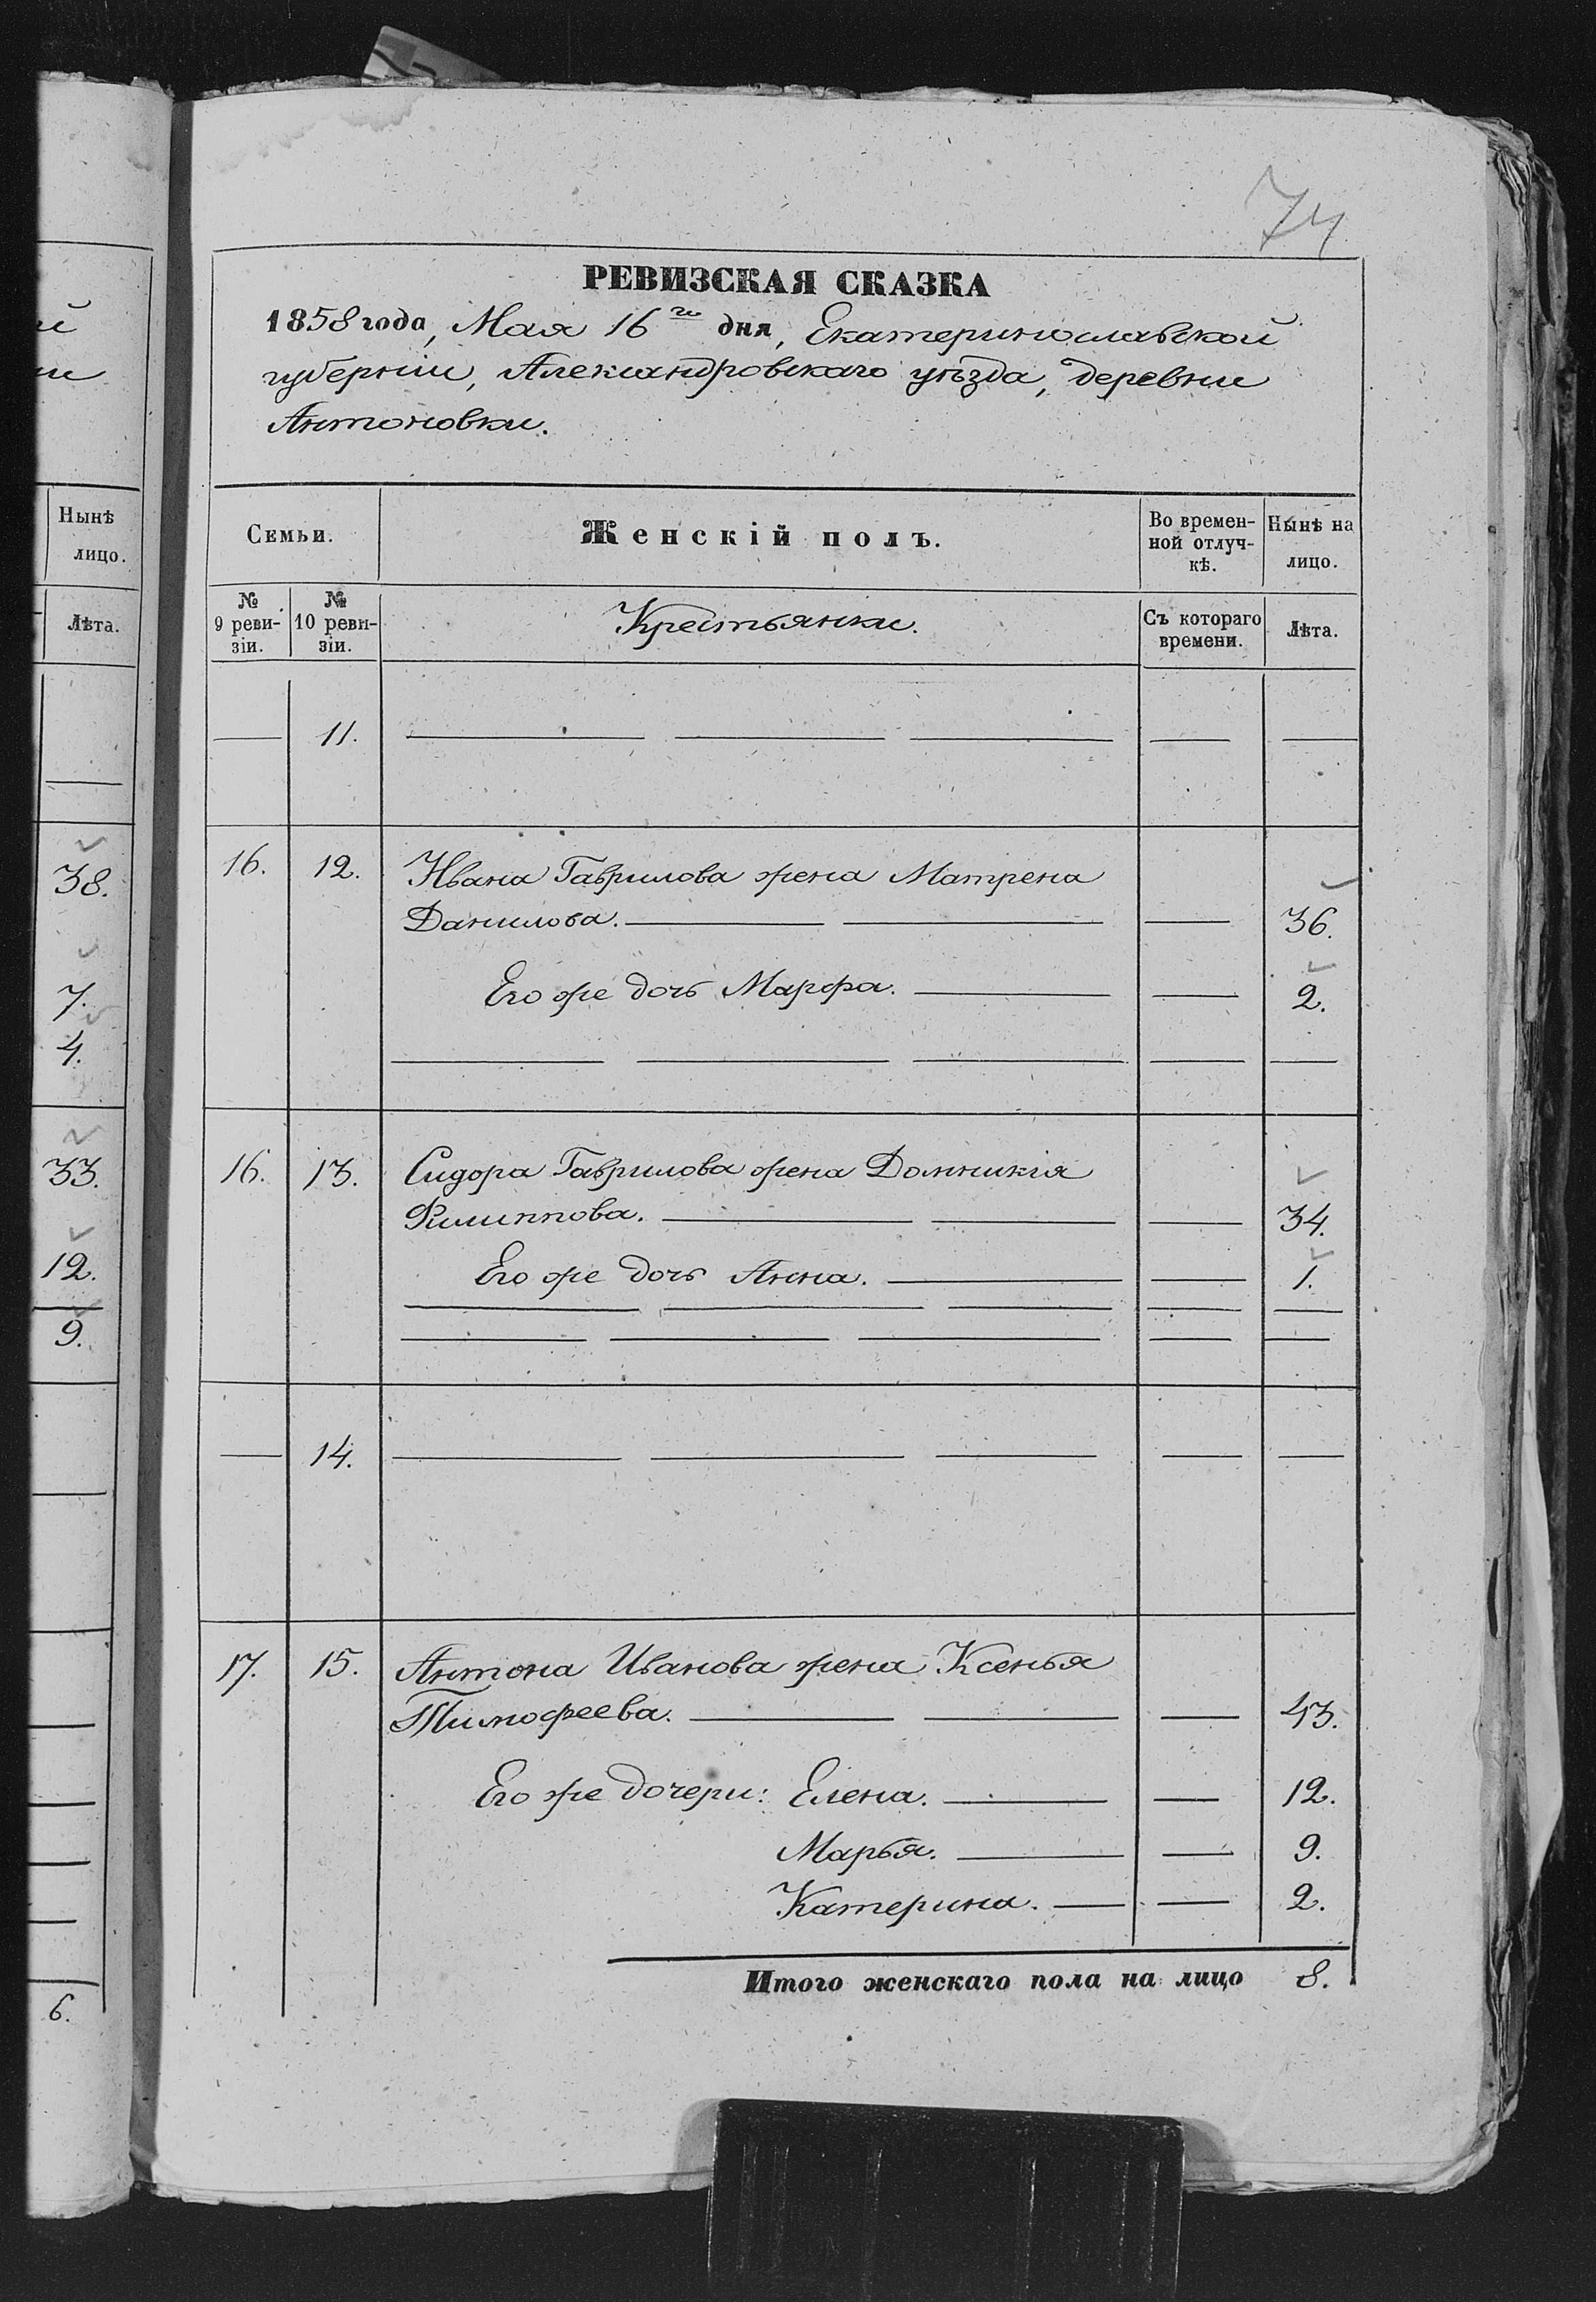 й
ии
Нынѣ
лицо.
Лѣта.
38.
7.
4.
33.
12.
9.
6.
74
РЕВИЗСКАЯ СКАЗКА
1858 года, Мая 16го дня, Екатеринославской
губерніи, Александровскаго уѣзда, деревни
Антоновки.
Семьи.
Женскій полъ.
Во времен-
ной отлуч-
кѣ.
Нынѣ на
лицо.
№
9 реви-
зіи.
№
10 реви-
зіи.
Крестьянки.
Съ котораго
времени.
Лѣта.
11.
16. 12. Ивана Гаврилова жена Матрена
Данилова. 36.
Его же дочь Марфа. 2.
16. 13. Сидора Гаврилова жена Домникія
Филиппова. 34.
Его же дочь Анна. 1.
14.
17. 15. Антона Иванова жена Ксенья
Тимофеева. 43.
Его же дочери: Елена. 12.
Марья. 9.
Катерина. 2.
Итого женскаго пола на лицо 8.